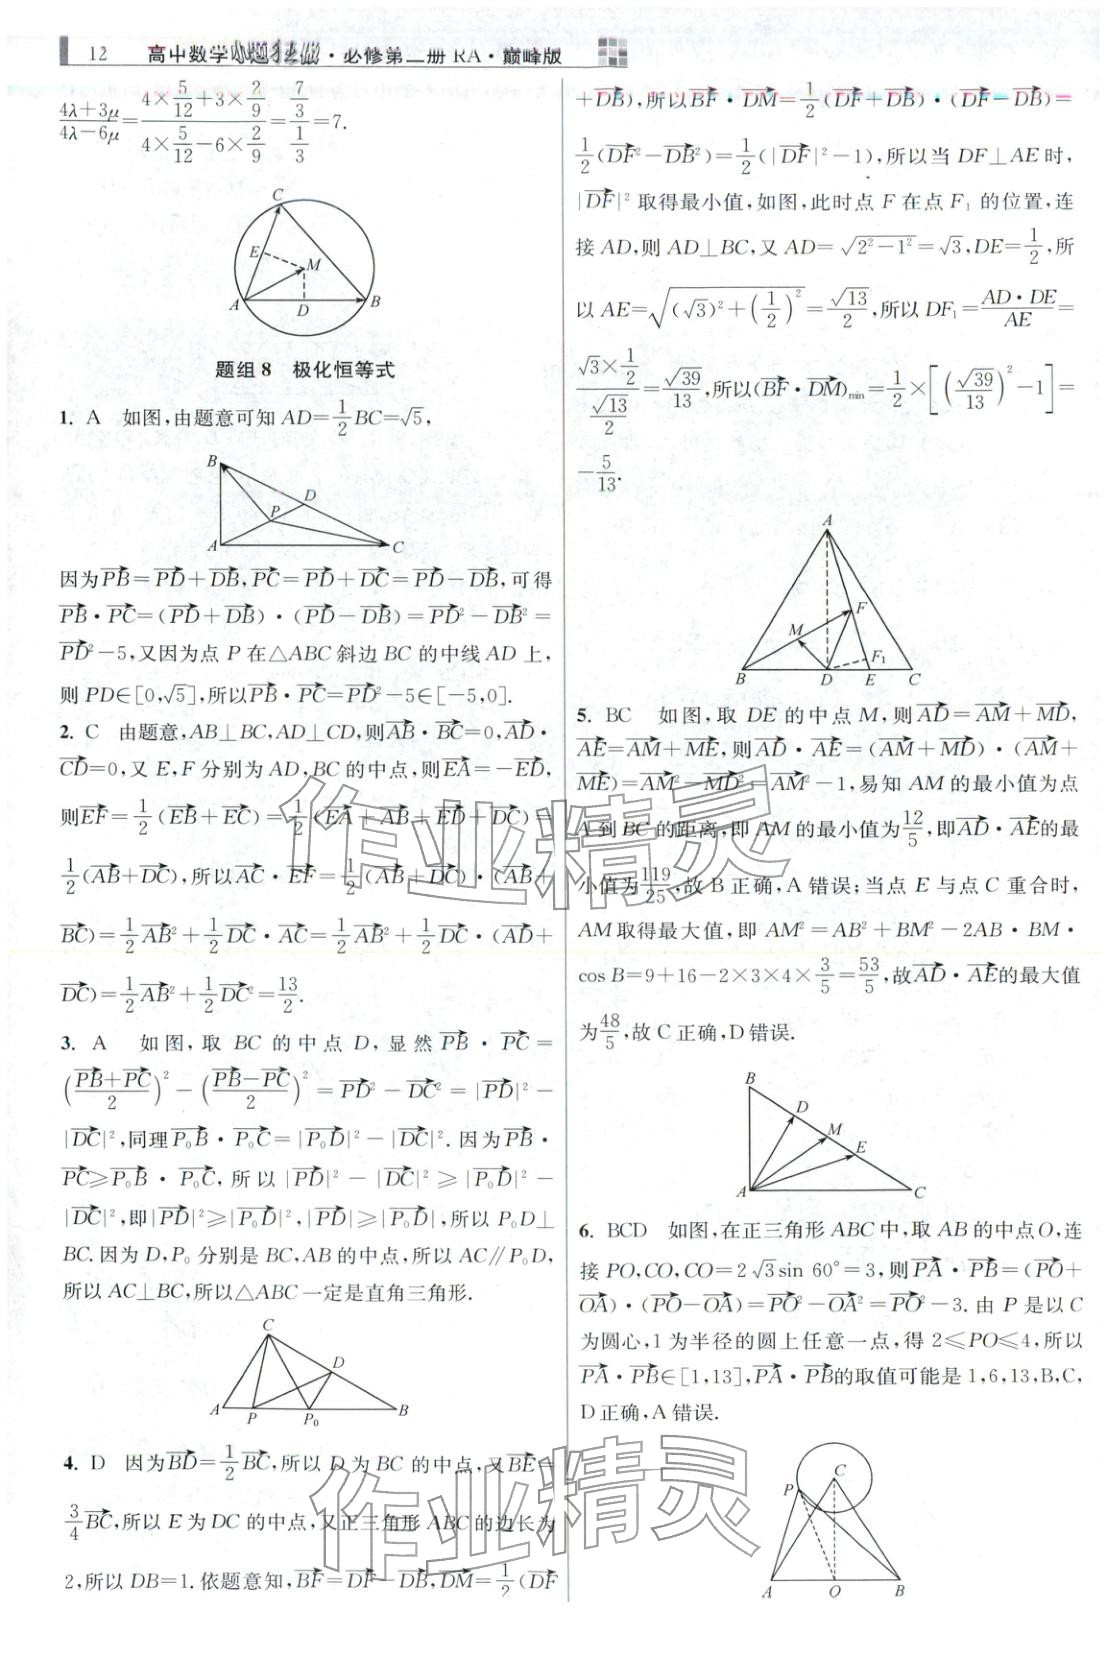 12 高中数学小题狂做·必修第二册 RA·巅峰版
$\frac{4λ+3μ}{4λ-6μ}=\frac{4×\frac{5}{12}+3×\frac{2}{9}}{4×\frac{5}{12}-6×\frac{2}{9}}=\frac{\frac{7}{3}}{\frac{1}{3}}=7.$
C
E
M
A
D
B
题组 8 极化恒等式
1. A 如图,由题意可知 $AD=\frac{1}{2}BC=\sqrt{5}$,
B
D
P
A
C
因为$\overrightarrow{PB}=\overrightarrow{PD}+\overrightarrow{DB},\overrightarrow{PC}=\overrightarrow{PD}+\overrightarrow{DC}=\overrightarrow{PD}-\overrightarrow{DB}$,可得
$\overrightarrow{PB}·\overrightarrow{PC}=(\overrightarrow{PD}+\overrightarrow{DB})·(\overrightarrow{PD}-\overrightarrow{DB})=\overrightarrow{PD}^2-\overrightarrow{DB}^2=$
$\overrightarrow{PD}^2-5$,又因为点 P 在△ABC 斜边 BC 的中线 AD 上,
则 $PD∈[0,\sqrt{5}]$,所以$\overrightarrow{PB}·\overrightarrow{PC}=\overrightarrow{PD}^2-5∈[-5,0]$.
2. C 由题意,AB⊥BC,AD⊥CD,则$\overrightarrow{AB}·\overrightarrow{BC}=0,\overrightarrow{AD}·$
$\overrightarrow{CD}=0$,又 E,F 分别为 AD,BC 的中点,则$\overrightarrow{EA}=-\overrightarrow{ED}$,
则$\overrightarrow{EF}=\frac{1}{2}(\overrightarrow{EB}+\overrightarrow{EC})=\frac{1}{2}(\overrightarrow{EA}+\overrightarrow{AB}+\overrightarrow{ED}+\overrightarrow{DC})=$
$\frac{1}{2}(\overrightarrow{AB}+\overrightarrow{DC})$,所以$\overrightarrow{AC}·\overrightarrow{EF}=\frac{1}{2}(\overrightarrow{AB}+\overrightarrow{DC})·(\overrightarrow{AB}+$
$\overrightarrow{BC})=\frac{1}{2}\overrightarrow{AB}^2+\frac{1}{2}\overrightarrow{DC}·\overrightarrow{AC}=\frac{1}{2}\overrightarrow{AB}^2+\frac{1}{2}\overrightarrow{DC}·(\overrightarrow{AD}+$
$\overrightarrow{DC})=\frac{1}{2}\overrightarrow{AB}^2+\frac{1}{2}\overrightarrow{DC}^2=\frac{13}{2}$.
3. A 如图,取 BC 的中点 D,显然 $\overrightarrow{PB}·\overrightarrow{PC}=$
$\left(\frac{\overrightarrow{PB}+\overrightarrow{PC}}{2}\right)^2-\left(\frac{\overrightarrow{PB}-\overrightarrow{PC}}{2}\right)^2=\overrightarrow{PD}^2-\overrightarrow{DC}^2=|\overrightarrow{PD}|^2-$
$|\overrightarrow{DC}|^2$,同理$\overrightarrow{P_0B}·\overrightarrow{P_0C}=|\overrightarrow{P_0D}|^2-|\overrightarrow{DC}|^2$.因为$\overrightarrow{PB}·$
$\overrightarrow{PC}≥\overrightarrow{P_0B}·\overrightarrow{P_0C}$,所以 $|\overrightarrow{PD}|^2-|\overrightarrow{DC}|^2≥|\overrightarrow{P_0D}|^2-$
$|\overrightarrow{DC}|^2$,即$|\overrightarrow{PD}|^2≥|\overrightarrow{P_0D}|^2,|\overrightarrow{PD}|≥|\overrightarrow{P_0D}|$,所以 P₀D⊥
BC.因为 D,P₀ 分别是 BC,AB 的中点,所以 AC∥P₀D,
所以 AC⊥BC,所以△ABC 一定是直角三角形.
C
D
A
P
P₀
B
4. D 因为$\overrightarrow{BD}=\frac{1}{2}\overrightarrow{BC}$,所以 D 为 BC 的中点,又$\overrightarrow{BE}=$
$\frac{3}{4}\overrightarrow{BC}$,所以 E 为 DC 的中点,又正三角形 ABC 的边长为
2,所以 DB=1.依题意知,$\overrightarrow{BF}=\overrightarrow{DF}-\overrightarrow{DB},\overrightarrow{DM}=\frac{1}{2}(\overrightarrow{DF}$
$+\overrightarrow{DB})$,所以$\overrightarrow{BF}·\overrightarrow{DM}=\frac{1}{2}(\overrightarrow{DF}+\overrightarrow{DB})·(\overrightarrow{DF}-\overrightarrow{DB})=$
$\frac{1}{2}(\overrightarrow{DF}^2-\overrightarrow{DB}^2)=\frac{1}{2}(|\overrightarrow{DF}|^2-1)$,所以当 DF⊥AE 时,
$|\overrightarrow{DF}|^2$ 取得最小值,如图,此时点 F 在点 F₁ 的位置,连
接 AD,则 AD⊥BC,又 $AD=\sqrt{2^2-1^2}=\sqrt{3},DE=\frac{1}{2}$,所
以 $AE=\sqrt{(\sqrt{3})^2+\left(\frac{1}{2}\right)^2}=\frac{\sqrt{13}}{2}$,所以 $DF_1=\frac{AD·DE}{AE}=$
$\frac{\sqrt{3}×\frac{1}{2}}{\frac{\sqrt{13}}{2}}=\frac{\sqrt{39}}{13}$,所以$(\overrightarrow{BF}·\overrightarrow{DM})_{min}=\frac{1}{2}×\left[\left(\frac{\sqrt{39}}{13}\right)^2-1\right]=$
$-\frac{5}{13}$.
A
F
M
F₁
B
D
E
C
5. BC 如图,取 DE 的中点 M,则$\overrightarrow{AD}=\overrightarrow{AM}+\overrightarrow{MD}$,
$\overrightarrow{AE}=\overrightarrow{AM}+\overrightarrow{ME}$,则$\overrightarrow{AD}·\overrightarrow{AE}=(\overrightarrow{AM}+\overrightarrow{MD})·(\overrightarrow{AM}+$
$\overrightarrow{ME})=\overrightarrow{AM}^2-\overrightarrow{MD}^2=\overrightarrow{AM}^2-1$,易知 AM 的最小值为点
A 到 BC 的距离,即 AM 的最小值为$\frac{12}{5}$,即$\overrightarrow{AD}·\overrightarrow{AE}$的最
小值为$\frac{119}{25}$,故 B 正确,A 错误;当点 E 与点 C 重合时,
AM 取得最大值,即 $AM^2=AB^2+BM^2-2AB·BM·$
$\cos B=9+16-2×3×4×\frac{3}{5}=\frac{53}{5}$,故$\overrightarrow{AD}·\overrightarrow{AE}$的最大值
为$\frac{48}{5}$,故 C 正确,D 错误.
B
D
M
E
A
C
6. BCD 如图,在正三角形 ABC 中,取 AB 的中点 O,连
接 PO,CO,$CO=2\sqrt{3}\sin 60°=3$,则$\overrightarrow{PA}·\overrightarrow{PB}=(\overrightarrow{PO}+$
$\overrightarrow{OA})·(\overrightarrow{PO}-\overrightarrow{OA})=\overrightarrow{PO}^2-\overrightarrow{OA}^2=\overrightarrow{PO}^2-3$.由 P 是以 C
为圆心,1 为半径的圆上任意一点,得 2≤PO≤4,所以
$\overrightarrow{PA}·\overrightarrow{PB}∈[1,13],\overrightarrow{PA}·\overrightarrow{PB}$的取值可能是 1,6,13,B,C,
D 正确,A 错误.
C
P
A
O
B
作业精灵
作业精灵